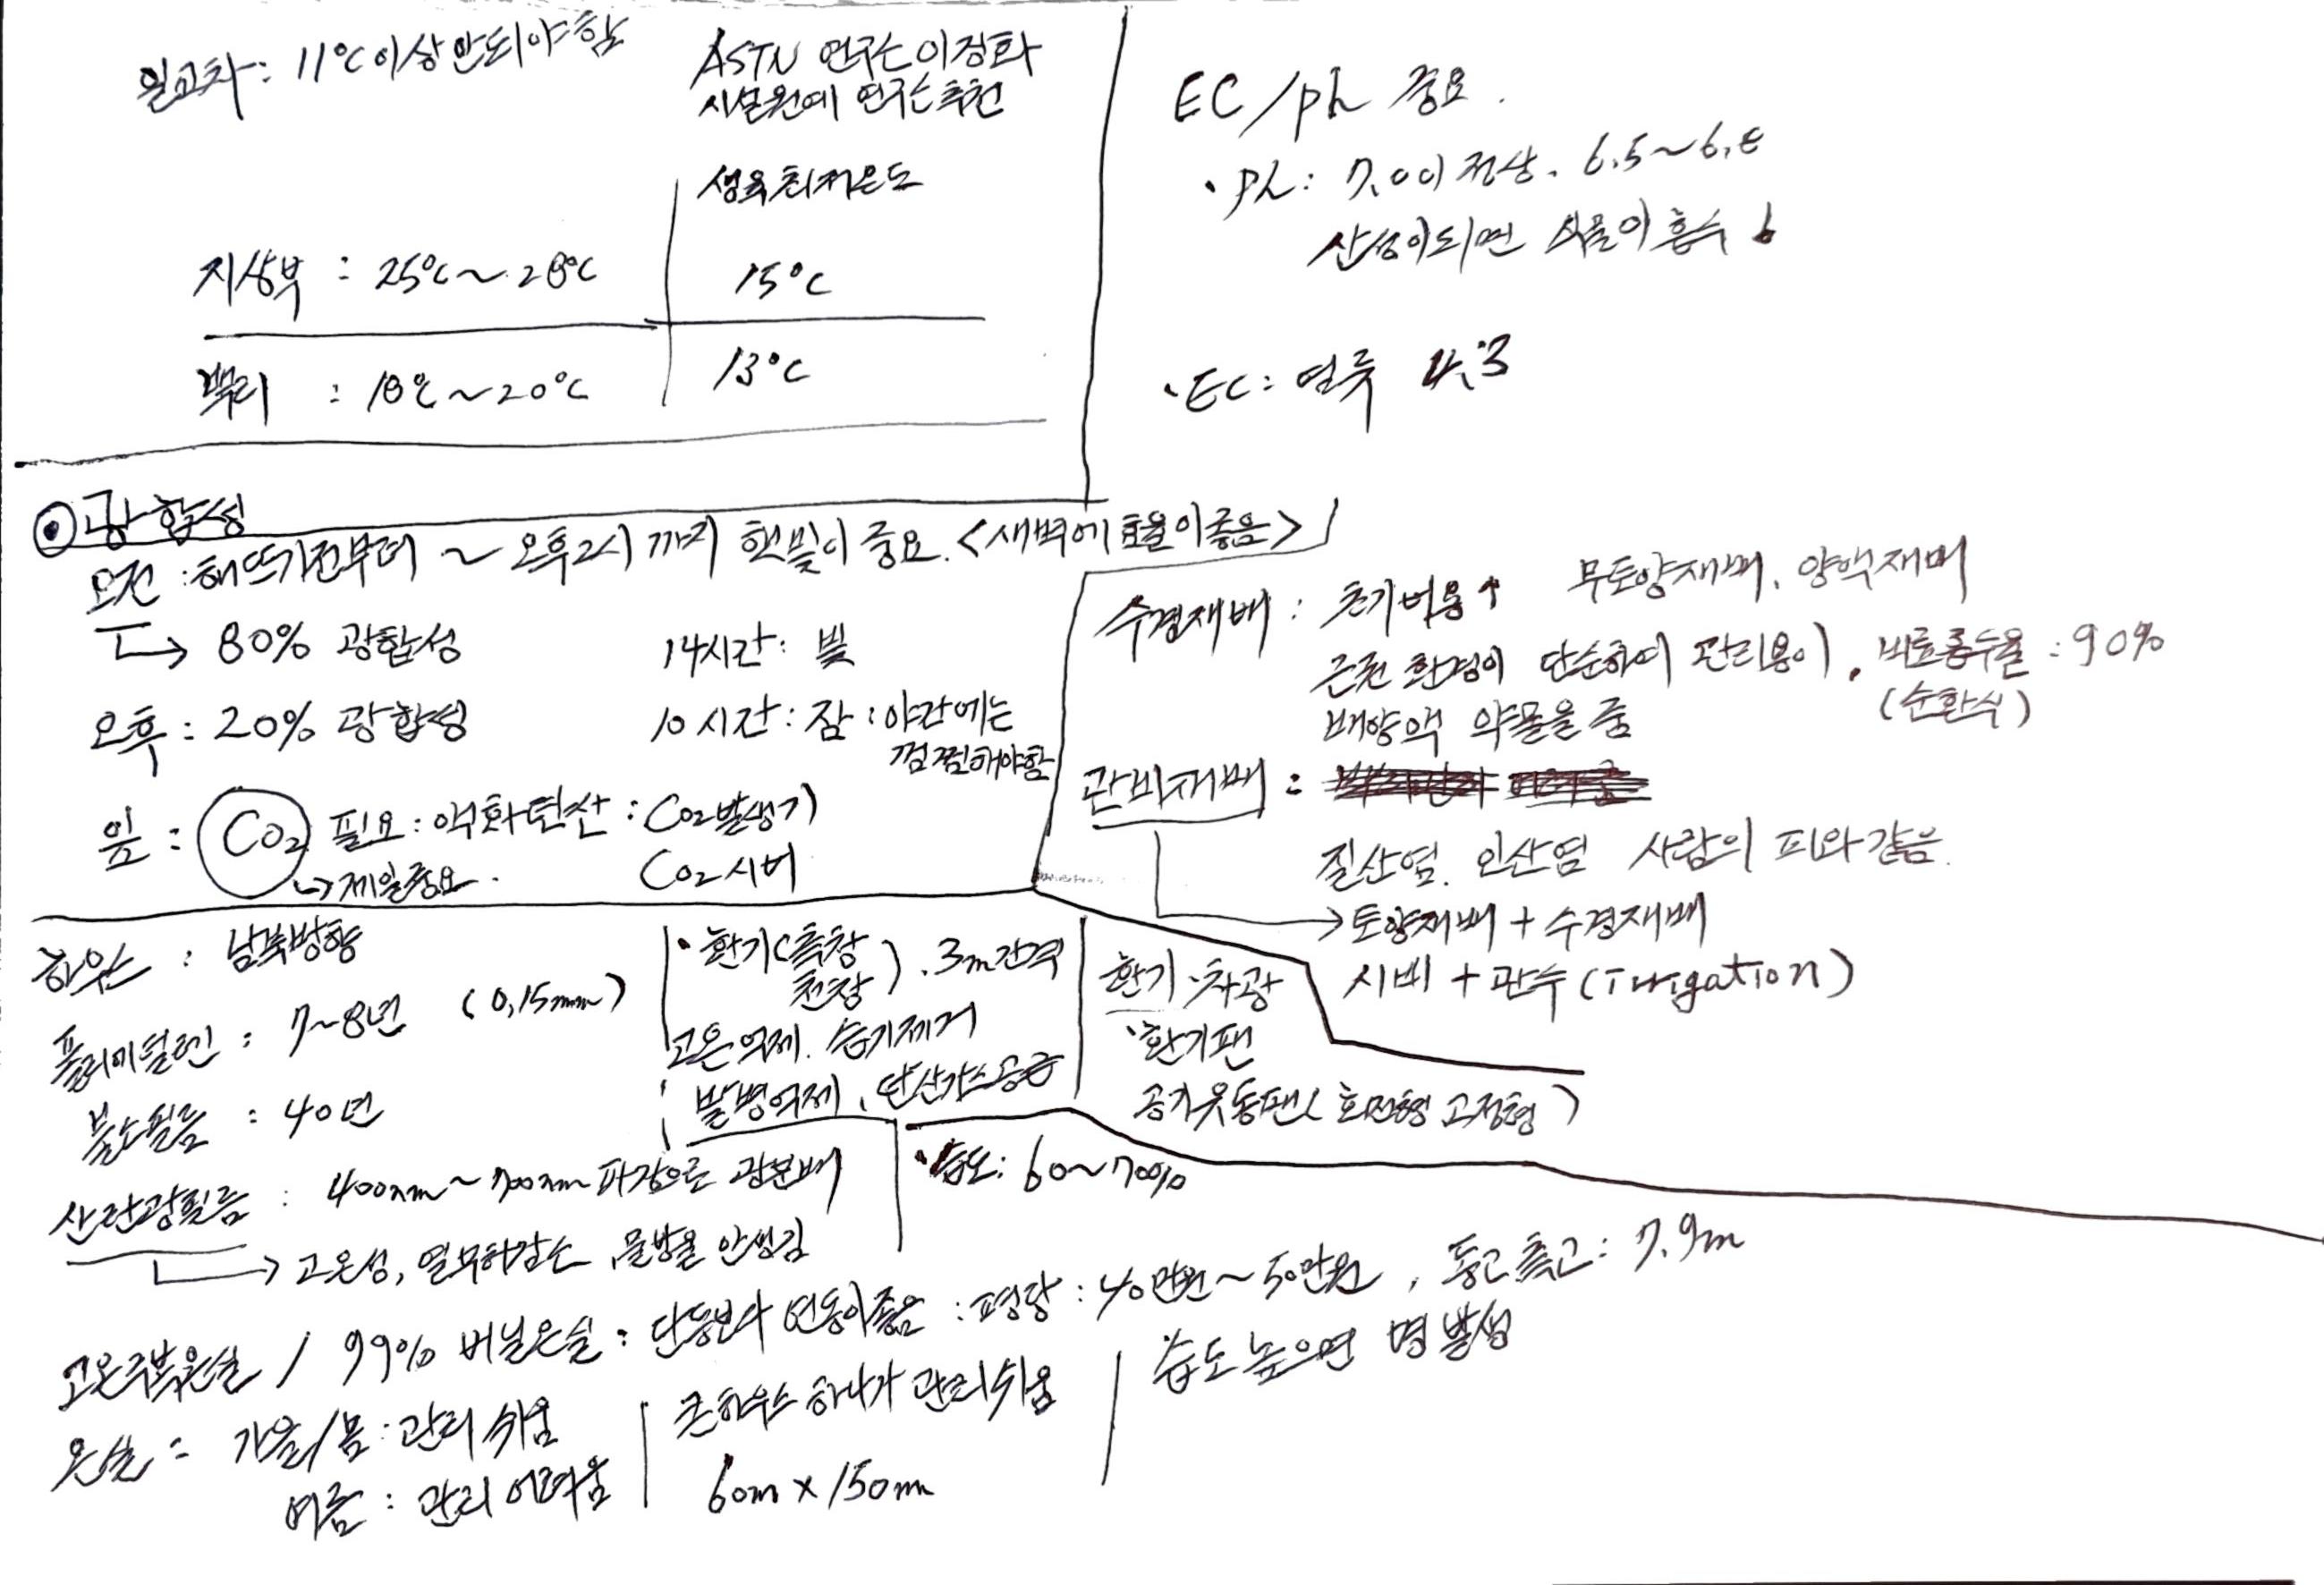 일교차: 11℃이상 안되야함
ASTN 연구는 이정화
시설원예 연구는 추천
생육최저온도
지상부 : 25℃~28℃
15℃
뿌리 : 18℃~20℃
13℃
EC/ph 중요.
· ph: 7.0이 정상. 6.5~6.8
산성이되면 식물이 흡수
· EC:
⊙광합성
오전 :해뜨기전부터 ~ 오후2시까지 햇빛이 중요. <새벽에 효율이좋음>
→ 80% 광합성
14시간: 빛
오후 : 20% 광합성
10시간: 잠 :야간에는
껌껌해야함
잎 : CO2 필요: 액화탄산 : CO2발생기
→제일중요.
CO2시비
수경재배 : 초기비용↑ 무토양재배, 양액재배
근권 환경이 단순하여 관리용이. 비료흡수율 : 90%
(순환식)
배양액 약물을 줌
관비재배 :
질산염. 인산염 사람의 피와같음.
→토양재배 + 수경재배
시비 + 관수 (Irrigation)
하우스 : 남북방향
폴리에틸렌 : 7~8년 (0,15mm)
불소필름 : 40년
산란광필름 : 400nm~700nm 파장으로 광분배
→ 고온성, 열부하감소, 물방울 안생김
· 환기(측창 천창). 3m간격
고온억제. 습기제거
발병억제, 탄산가스공급
환기·차광
·환기팬
공기유동팬(회전형 고정형)
·습도: 60~70%
고온극복온실 / 99% 비닐온실 : 단동보다 연동이좋음 : 평당 : 40만원~50만원, 동고측고: 7.9m
온실 : 가을/봄 : 관리 쉬움
여름 : 관리 어려움
큰하우스 하나가 관리쉬움
60m x 150m
습도높으면 병발생